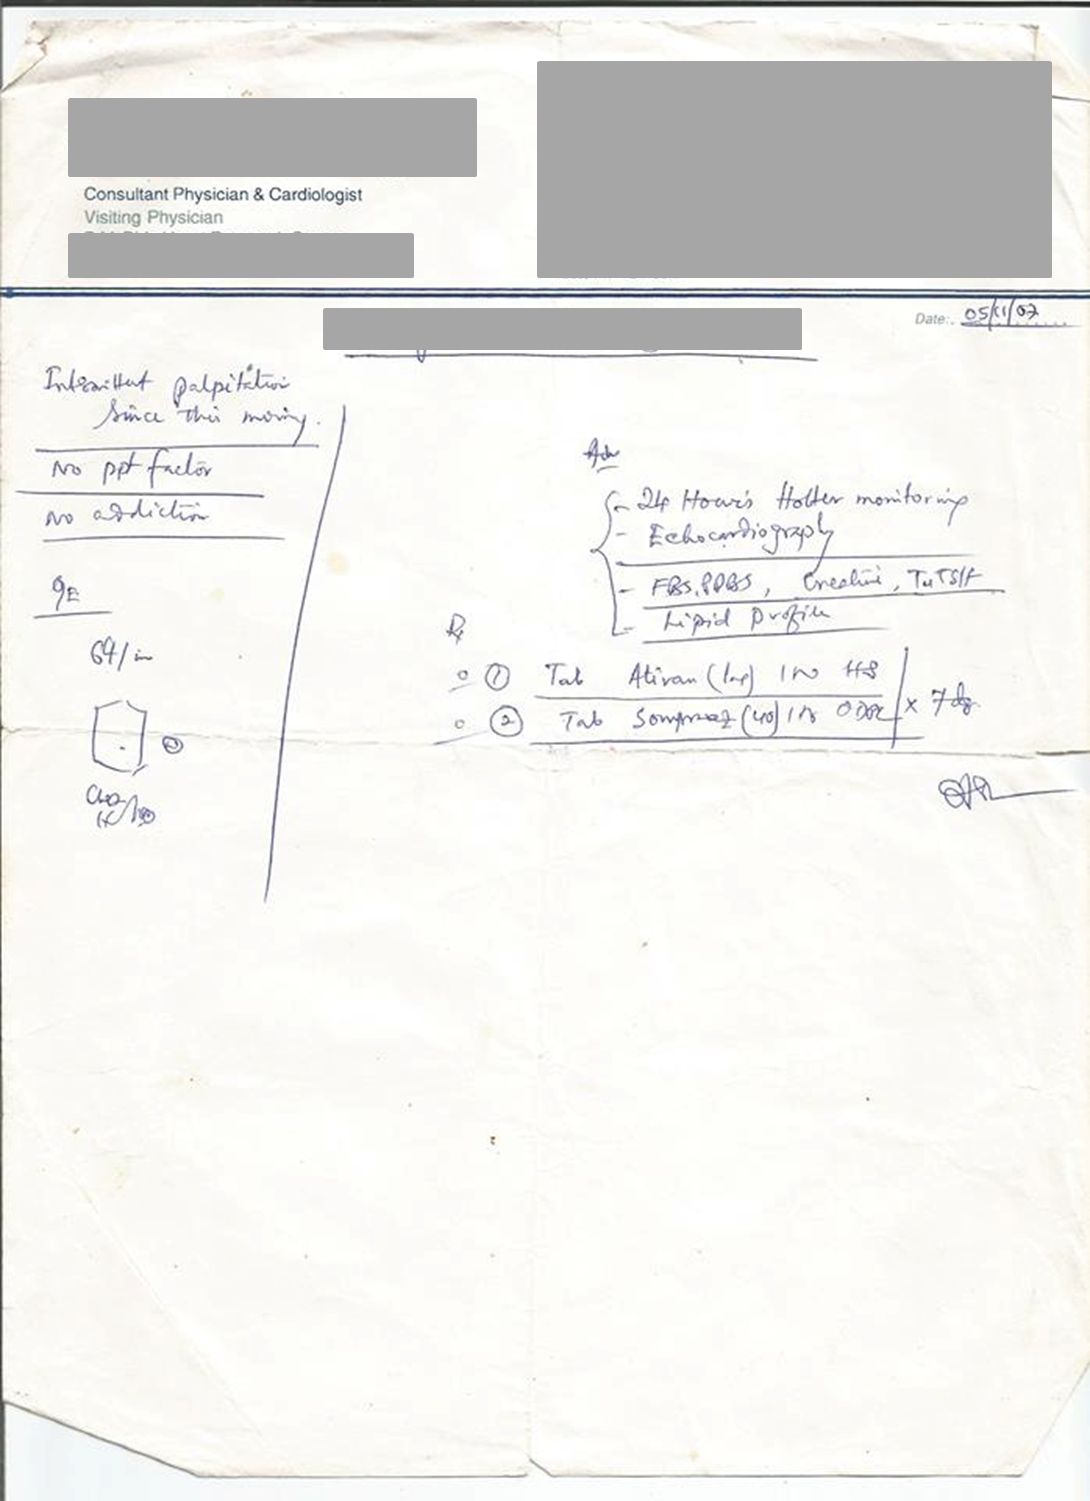 Consultant Physician & Cardiologist
Visiting Physician
Date: 05/11/07
Intermittent palpitation
since this morning.
No ppt factor
No addiction
O/E
/m
Adv
- 24 Hours Holter monitoring
- Echocardiography
- FBS, PPBS, Creatini, T4 TSH
- Lipid Profile
Rx
① Tab Ativan (1mg) HS
② Tab Sompraz (40) × 7 days